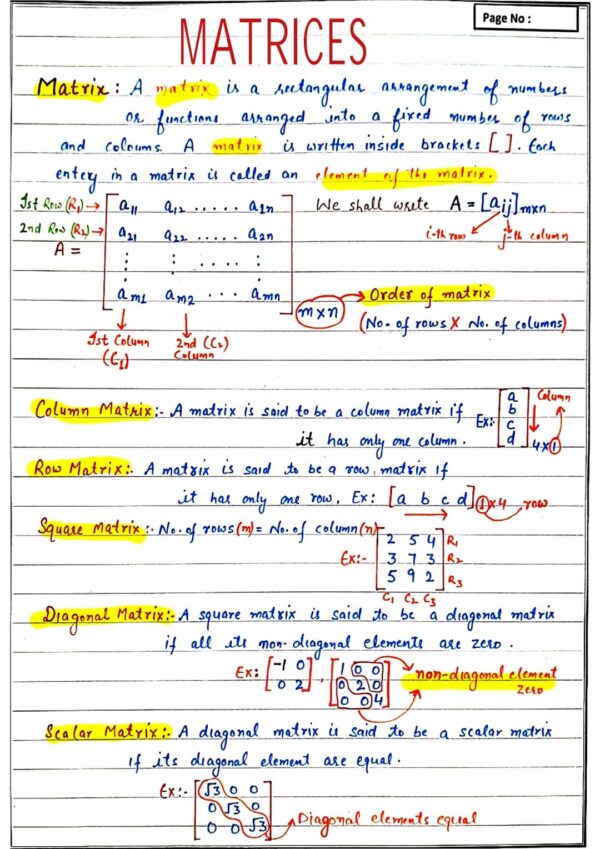 Page No :
MATRICES
Matrix : A matrix is a rectangular arrangement of numbers
or functions arranged into a fixed number of rows
and coloums. A matrix is written inside brackets [ ]. Each
entery in a matrix is called an element of the matrix.
1st Row (R₁) → a₁₁ a₁₂ ..... a₁ₙ We shall write A = [aᵢⱼ]ₘₓₙ
2nd Row (R₂) → a₂₁ a₂₂ ..... a₂ₙ i-th row j-th column
A = ⋮ ⋮ ..... ⋮
aₘ₁ aₘ₂ ... aₘₙ m×n → Order of matrix
(No. of rows X No. of columns)
1st Column (C₁) 2nd (C₂) Column
Column Matrix:- A matrix is said to be a column matrix if
it has only one column. Ex:- [a b c d] 4×1 Column
Row Matrix:- A matrix is said to be a row matrix if
it has only one row. Ex: [a b c d] 1×4 row
Square Matrix:- No. of rows(m) = No. of column(n)
Ex:-
2 5 4 R₁
3 7 3 R₂
5 9 2 R₃
C₁ C₂ C₃
Diagonal Matrix:- A square matrix is said to be a diagonal matrix
if all its non-diagonal elements are zero.
Ex: [-1 0 , [1 0 0 non-diagonal element
0 2] 0 2 0 zero
0 0 4]
Scalar Matrix:- A diagonal matrix is said to be a scalar matrix
if its diagonal element are equal.
Ex:- [√3 0 0
0 √3 0
0 0 √3] Diagonal elements equal